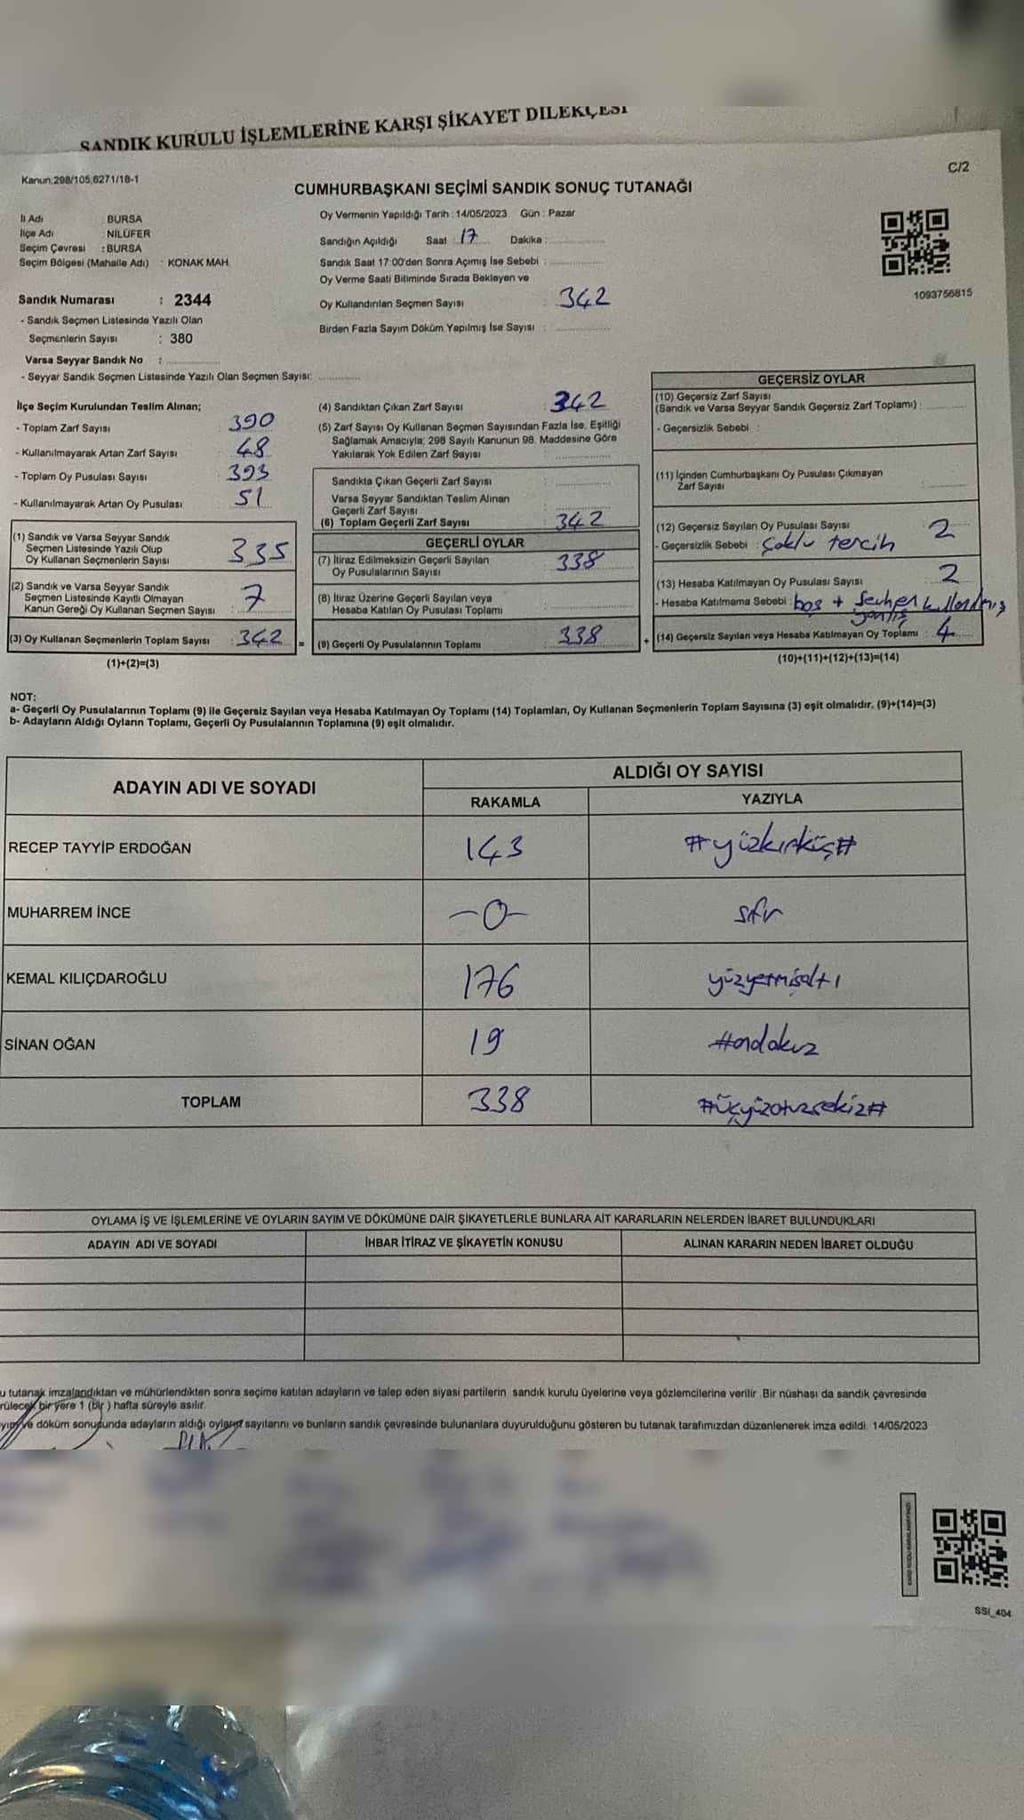 SANDIK KURULU İŞLEMLERİNE KARŞI ŞİKAYET DİLEKÇESİ
C/2
Kanun:298/105,6271/18-1
CUMHURBAŞKANI SEÇİMİ SANDIK SONUÇ TUTANAĞI
İl Adı : BURSA
İlçe Adı : NİLÜFER
Seçim Çevresi : BURSA
Seçim Bölgesi (Mahalle Adı) : KONAK MAH.
Sandık Numarası : 2344
- Sandık Seçmen Listesinde Yazılı Olan
Seçmenlerin Sayısı : 380
Varsa Seyyar Sandık No :
- Seyyar Sandık Seçmen Listesinde Yazılı Olan Seçmen Sayısı:
Oy Vermenin Yapıldığı Tarih : 14/05/2023 Gün : Pazar
Sandığın Açıldığı Saat : 17 Dakika :
Sandık Saat 17:00'den Sonra Açımış İse Sebebi :
Oy Verme Saati Bitiminde Sırada Bekleyen ve
Oy Kullandırılan Seçmen Sayısı : 342
Birden Fazla Sayım Döküm Yapılmış İse Sayısı :
1093756815
İlçe Seçim Kurulundan Teslim Alınan;
- Toplam Zarf Sayısı : 390
- Kullanılmayarak Artan Zarf Sayısı : 48
- Toplam Oy Pusulası Sayısı : 393
- Kullanılmayarak Artan Oy Pusulası : 51
(1) Sandık ve Varsa Seyyar Sandık
Seçmen Listesinde Yazılı Olup
Oy Kullanan Seçmenlerin Sayısı : 335
(2) Sandık ve Varsa Seyyar Sandık
Seçmen Listesinde Kayıtlı Olmayan
Kanun Gereği Oy Kullanan Seçmen Sayısı : 7
(3) Oy Kullanan Seçmenlerin Toplam Sayısı : 342
(1)+(2)=(3)
(4) Sandıktan Çıkan Zarf Sayısı : 342
(5) Zarf Sayısı Oy Kullanan Seçmen Sayısından Fazla İse, Eşitliği
Sağlamak Amacıyla; 298 Sayılı Kanunun 98. Maddesine Göre
Yakılarak Yok Edilen Zarf Sayısı :
Sandıkta Çıkan Geçerli Zarf Sayısı :
Varsa Seyyar Sandıktan Teslim Alınan
Geçerli Zarf Sayısı :
(6) Toplam Geçerli Zarf Sayısı : 342
GEÇERLİ OYLAR
(7) İtiraz Edilmeksizin Geçerli Sayılan
Oy Pusulalarının Sayısı : 338
(8) İtiraz Üzerine Geçerli Sayılan veya
Hesaba Katılan Oy Pusulası Toplamı :
= (9) Geçerli Oy Pusulalarının Toplamı : 338
GEÇERSİZ OYLAR
(10) Geçersiz Zarf Sayısı
(Sandık ve Varsa Seyyar Sandık Geçersiz Zarf Toplamı) :
- Geçersizlik Sebebi :
(11) İçinden Cumhurbaşkanı Oy Pusulası Çıkmayan
Zarf Sayısı :
(12) Geçersiz Sayılan Oy Pusulası Sayısı : 2
- Geçersizlik Sebebi : Çoklu tercih
(13) Hesaba Katılmayan Oy Pusulası Sayısı : 2
- Hesaba Katılmama Sebebi : boş +
yanlış
+ (14) Geçersiz Sayılan veya Hesaba Katılmayan Oy Toplamı : 4
(10)+(11)+(12)+(13)=(14)
NOT:
a- Geçerli Oy Pusulalarının Toplamı (9) ile Geçersiz Sayılan veya Hesaba Katılmayan Oy Toplamı (14) Toplamları, Oy Kullanan Seçmenlerin Toplam Sayısına (3) eşit olmalıdır. (9)+(14)=(3)
b- Adayların Aldığı Oyların Toplamı, Geçerli Oy Pusulalarının Toplamına (9) eşit olmalıdır.
ADAYIN ADI VE SOYADI
ALDIĞI OY SAYISI
RAKAMLA YAZIYLA
RECEP TAYYİP ERDOĞAN 143 #yüzkırküç#
MUHARREM İNCE -0- sıfır
KEMAL KILIÇDAROĞLU 176 yüzyetmişaltı
SİNAN OĞAN 19 #ondokuz
TOPLAM 338 #üçyüzotuzsekiz#
OYLAMA İŞ VE İŞLEMLERİNE VE OYLARIN SAYIM VE DÖKÜMÜNE DAİR ŞİKAYETLERLE BUNLARA AİT KARARLARIN NELERDEN İBARET BULUNDUKLARI
ADAYIN ADI VE SOYADI İHBAR İTİRAZ VE ŞİKAYETİN KONUSU ALINAN KARARIN NEDEN İBARET OLDUĞU
u tutanak imzalandıktan ve mühürlendikten sonra seçime katılan adayların ve talep eden siyasi partilerin sandık kurulu üyelerine veya gözlemcilerine verilir. Bir nüshası da sandık çevresinde
rülecek bir yere 1 (bir) hafta süreyle asılır.
yım ve döküm sonucunda adayların aldığı oyların sayılarını ve bunların sandık çevresinde bulunanlara duyurulduğunu gösteren bu tutanak tarafımızdan düzenlenerek imza edildi. 14/05/2023
SSI_404